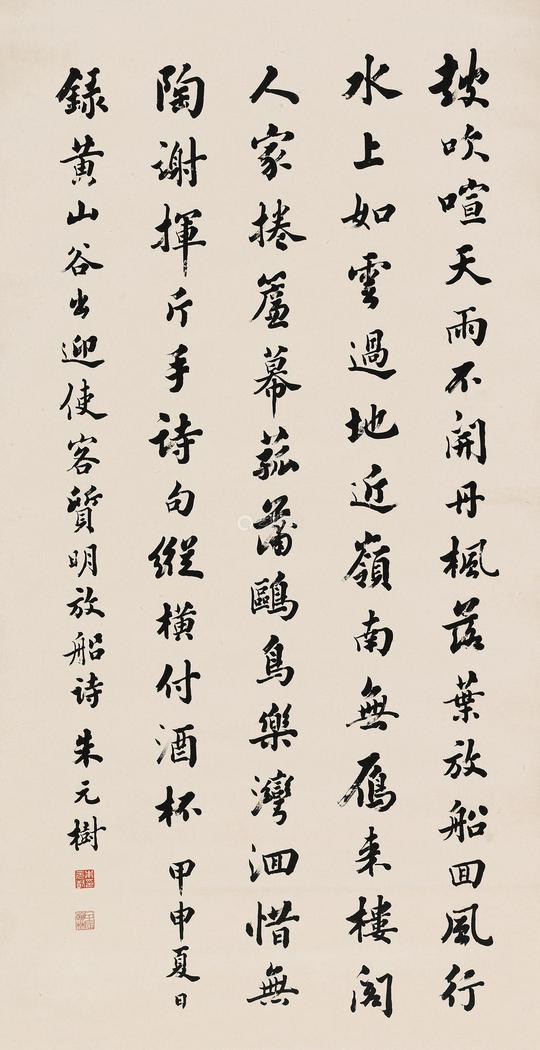 鼓吹喧天雨不開丹楓落葉放船回風行
水上如雲過地近嶺南無鴈来樓閣
人家捲簾幕菰蒲鷗鳥樂灣洄惜無
陶謝揮斤手詩句縱橫付酒杯甲申夏日
錄黃山谷出迎使客質明放船詩朱元樹